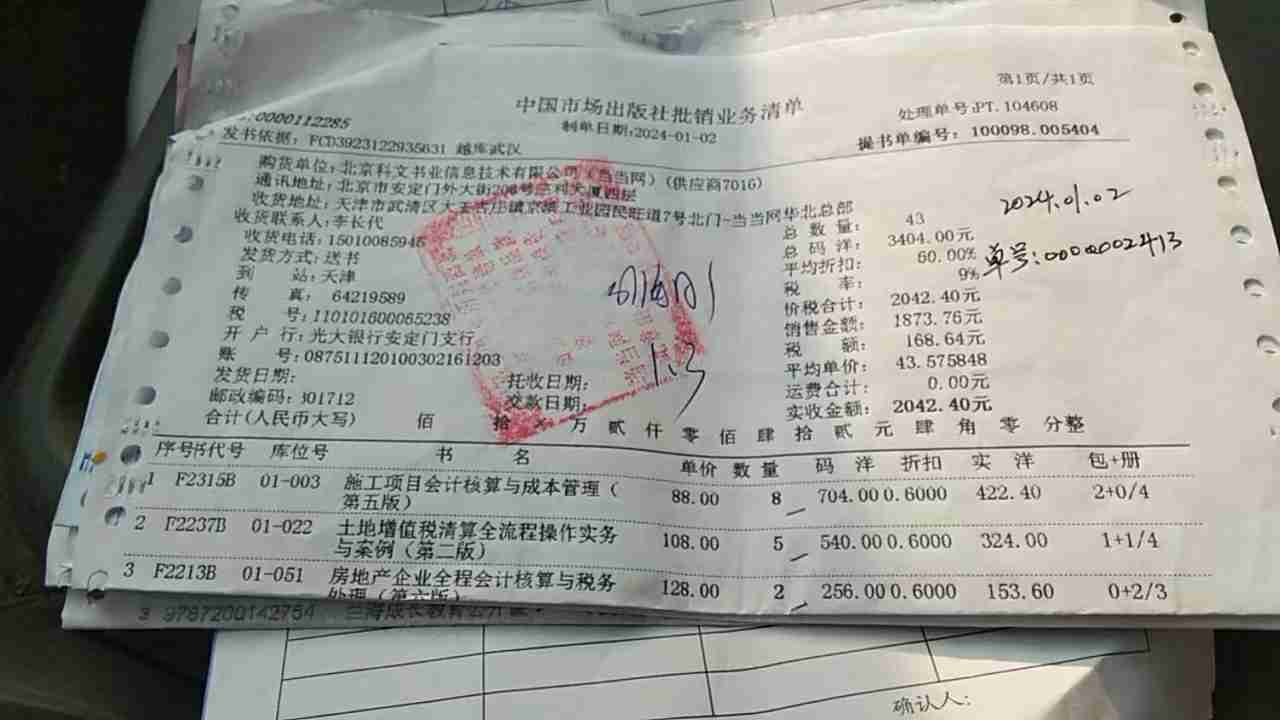 第1页/共1页
中国市场出版社批销业务清单
0000112285
制单日期:2024-01-02
处理单号:PT.104608
发书依据: FCD3923122935631 越库武汉
提书单编号: 100098.005404
购货单位: 北京科文书业信息技术有限公司(当当网)(供应商7016)
通讯地址: 北京市安定门外大街208号三利大厦四层
收货地址: 天津市武清区大王古庄镇京滨工业园民旺道7号北门-当当网华北总部
收货联系人: 李长代
收货电话: 15010085945
发货方式: 送书
到 站: 天津
传 真: 64219589
税 号: 110101600065238
开 户 行: 光大银行安定门支行
账 号: 08751112010030216​1203
发货日期:
托收日期:
邮政编码: 301712
交款日期:
总 数 量: 43
总 码 洋: 3404.00元
平均折扣: 60.00%
税 率: 9%
价税合计: 2042.40元
销售金额: 1873.76元
税 额: 168.64元
平均单价: 43.575848
运费合计: 0.00元
实收金额: 2042.40元
2024.01.02
单号:0000002413
1.3
合计(人民币大写) 佰 拾 × 万 贰 仟 零 佰 肆 拾 贰 元 肆 角 零 分整
序号 书代号 库位号 书 名 单价 数量 码 洋 折扣 实 洋 包+册
1 F2315B 01-003 施工项目会计核算与成本管理( 88.00 8 704.00 0.6000 422.40 2+0/4
第五版)
2 F2237B 01-022 土地增值税清算全流程操作实务 108.00 5 540.00 0.6000 324.00 1+1/4
与案例(第二版)
3 F2213B 01-051 房地产企业全程会计核算与税务 128.00 2 256.00 0.6000 153.60 0+2/3
处理(第六版)
3 9787200142754
确认人: